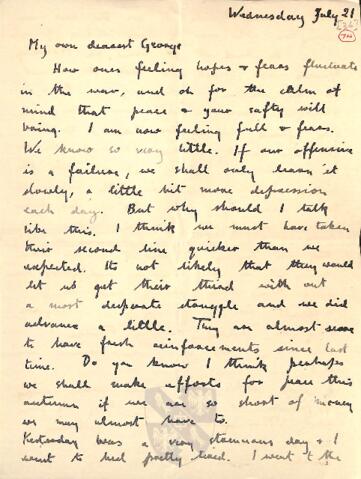 Wednesday July 21
74
My own dearest George
How ones feeling hopes & fears fluctuate
in the war, and oh for the calm of
mind that peace & your safty will
bring. I am now feeling full of fears.
We know so very little. If our offensive
is a failure, we shall only learn it
slowly, a little bit more depression
each day. But why should I talk
like this. I think we must have taken
their second line quicker than we
expected. Its not likely that they would
let us get their third with out
a most desperate struggle and we did
advance a little. They are almost sure
to have fresh reinforcements since last
time. Do you know I think perhaps
we shall make efforts for peace this
autumn if we are so short of money
we may almost have to.
Yesterday was a very strenuous day & I
went to bed pretty tired. I went to the